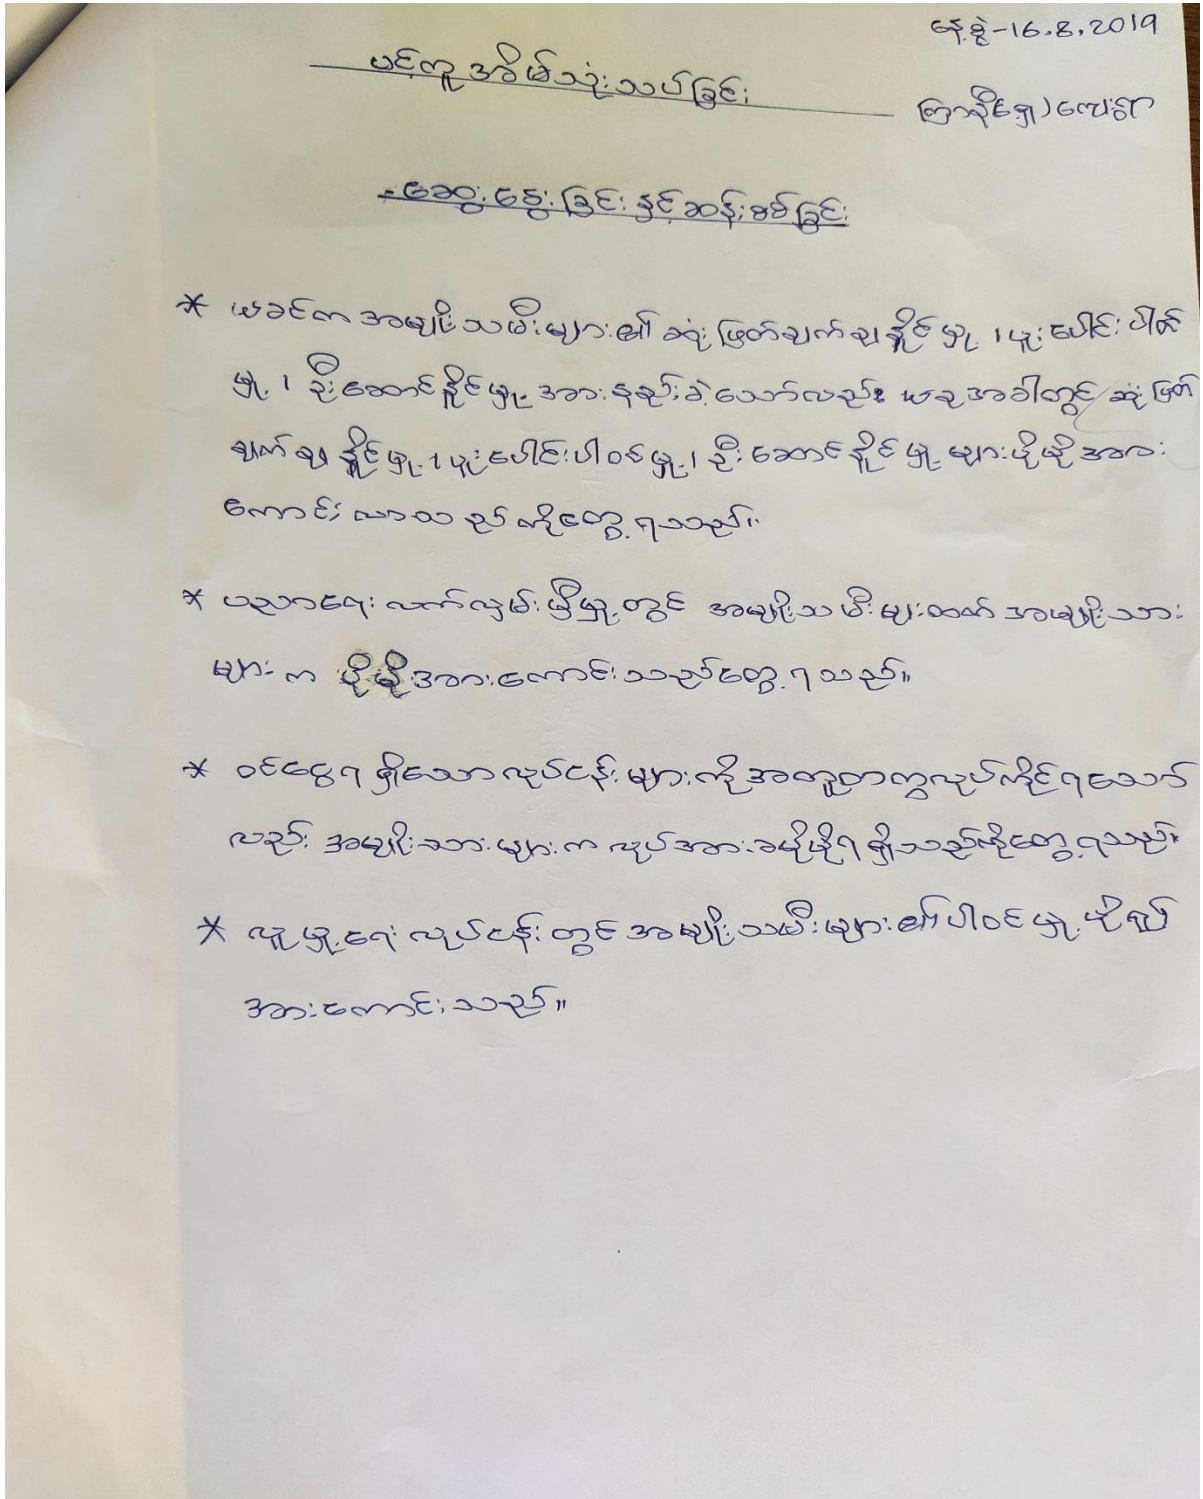 နေ့စွဲ-16.8.2019
ပင့်ကူအိမ်သုံးသပ်ခြင်း
ကြာနီ(ရှေ့)ကျေးရွာ
-ဆွေးနွေးခြင်းနှင့်ဆန်းစစ်ခြင်း
* ယခင်ကအမျိုးသမီးများ၏ ဆုံးဖြတ်ချက်ချနိုင်မှု့၊ပူးပေါင်းပါဝင်
မှု့၊ ဦးဆောင်နိုင်မှု့ အားနည်းခဲ့သော်လည်း ယခုအခါတွင် ဆုံးဖြတ်
ချက်ချနိုင်မှု့၊ပူးပေါင်းပါဝင်မှု့၊ဦးဆောင်နိုင်မှု့များပိုမိုအား
ကောင်းလာသည်ကိုတွေ့ရသည်။
* ပညာရေးလက်လှမ်းမှီမှု့တွင် အမျိုးသမီးများထက်အမျိုးသား
များက ပိုမိုအားကောင်းသည်တွေ့ရသည်။
* ဝင်ငွေရရှိသောလုပ်ငန်းများကိုအတူတကွလုပ်ကိုင်ရသော်
လည်း အမျိုးသားများကလုပ်အားခပိုမိုရရှိသည်ကိုတွေ့ရသည်။
* လူမှု့ရေးလုပ်ငန်းတွင်အမျိုးသမီးများ၏ပါဝင်မှု့ပို၍
အားကောင်းသည်။